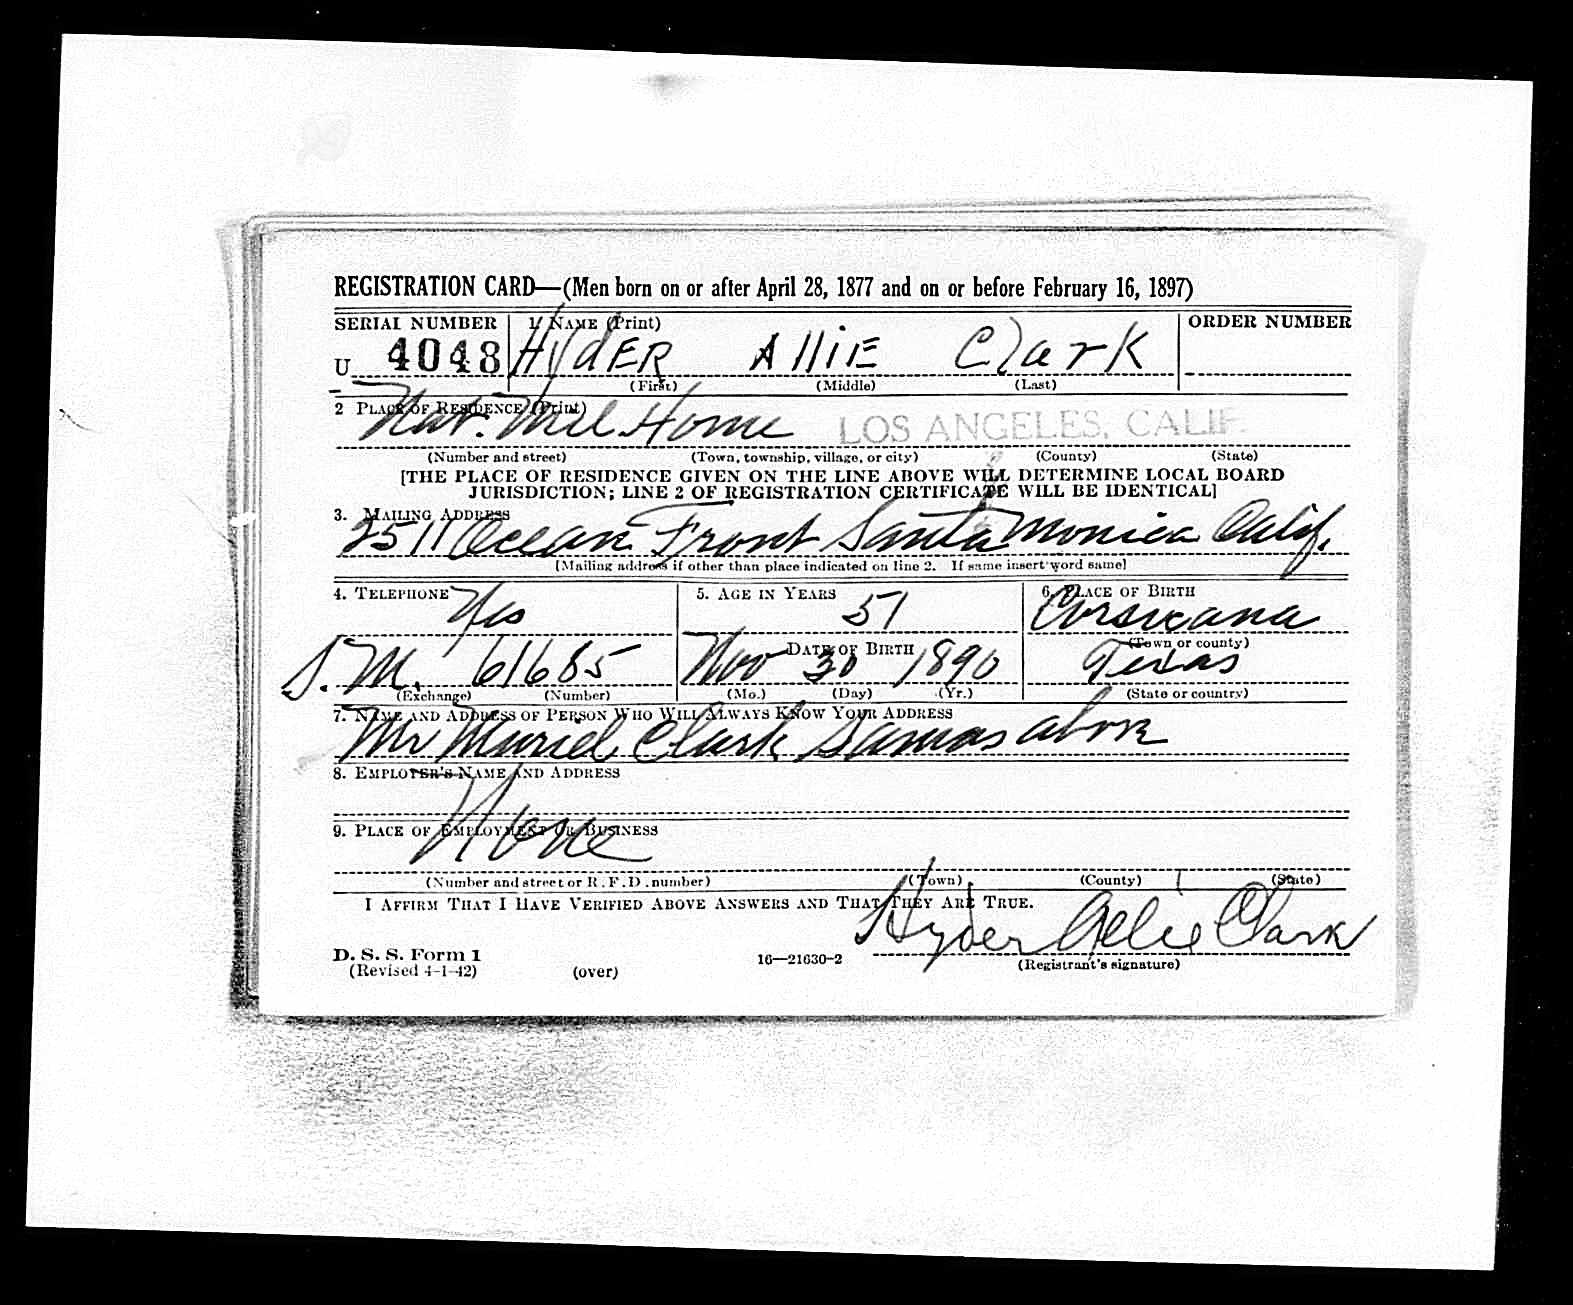 REGISTRATION CARD—(Men born on or after April 28, 1877 and on or before February 16, 1897)
SERIAL NUMBER 1. NAME (Print) ORDER NUMBER
U 4048 HydER AlliE Clark
(First) (Middle) (Last)
2 PLACE OF RESIDENCE (Print)
Nat. Mil Home LOS ANGELES, CALIF.
(Number and street) (Town, township, village, or city) (County) (State)
[THE PLACE OF RESIDENCE GIVEN ON THE LINE ABOVE WILL DETERMINE LOCAL BOARD
JURISDICTION; LINE 2 OF REGISTRATION CERTIFICATE WILL BE IDENTICAL]
3. MAILING ADDRESS
2511 Ocean Front Santa Monica Calif.
[Mailing address if other than place indicated on line 2. If same insert word same]
4. TELEPHONE 5. AGE IN YEARS 6. PLACE OF BIRTH
Yes 51 Corsicana
DATE OF BIRTH (Town or county)
S.M. 61685 Nov 30 1890 Texas
(Exchange) (Number) (Mo.) (Day) (Yr.) (State or country)
7. NAME AND ADDRESS OF PERSON WHO WILL ALWAYS KNOW YOUR ADDRESS
Mr Muriel Clark Samas above
8. EMPLOYER'S NAME AND ADDRESS
9. PLACE OF EMPLOYMENT OR BUSINESS
None
(Number and street or R. F. D. number) (Town) (County) (State)
I AFFIRM THAT I HAVE VERIFIED ABOVE ANSWERS AND THAT THEY ARE TRUE.
Hyder Allie Clark
D. S. S. Form 1 16—21630-2 (Registrant's signature)
(Revised 4-1-42) (over)